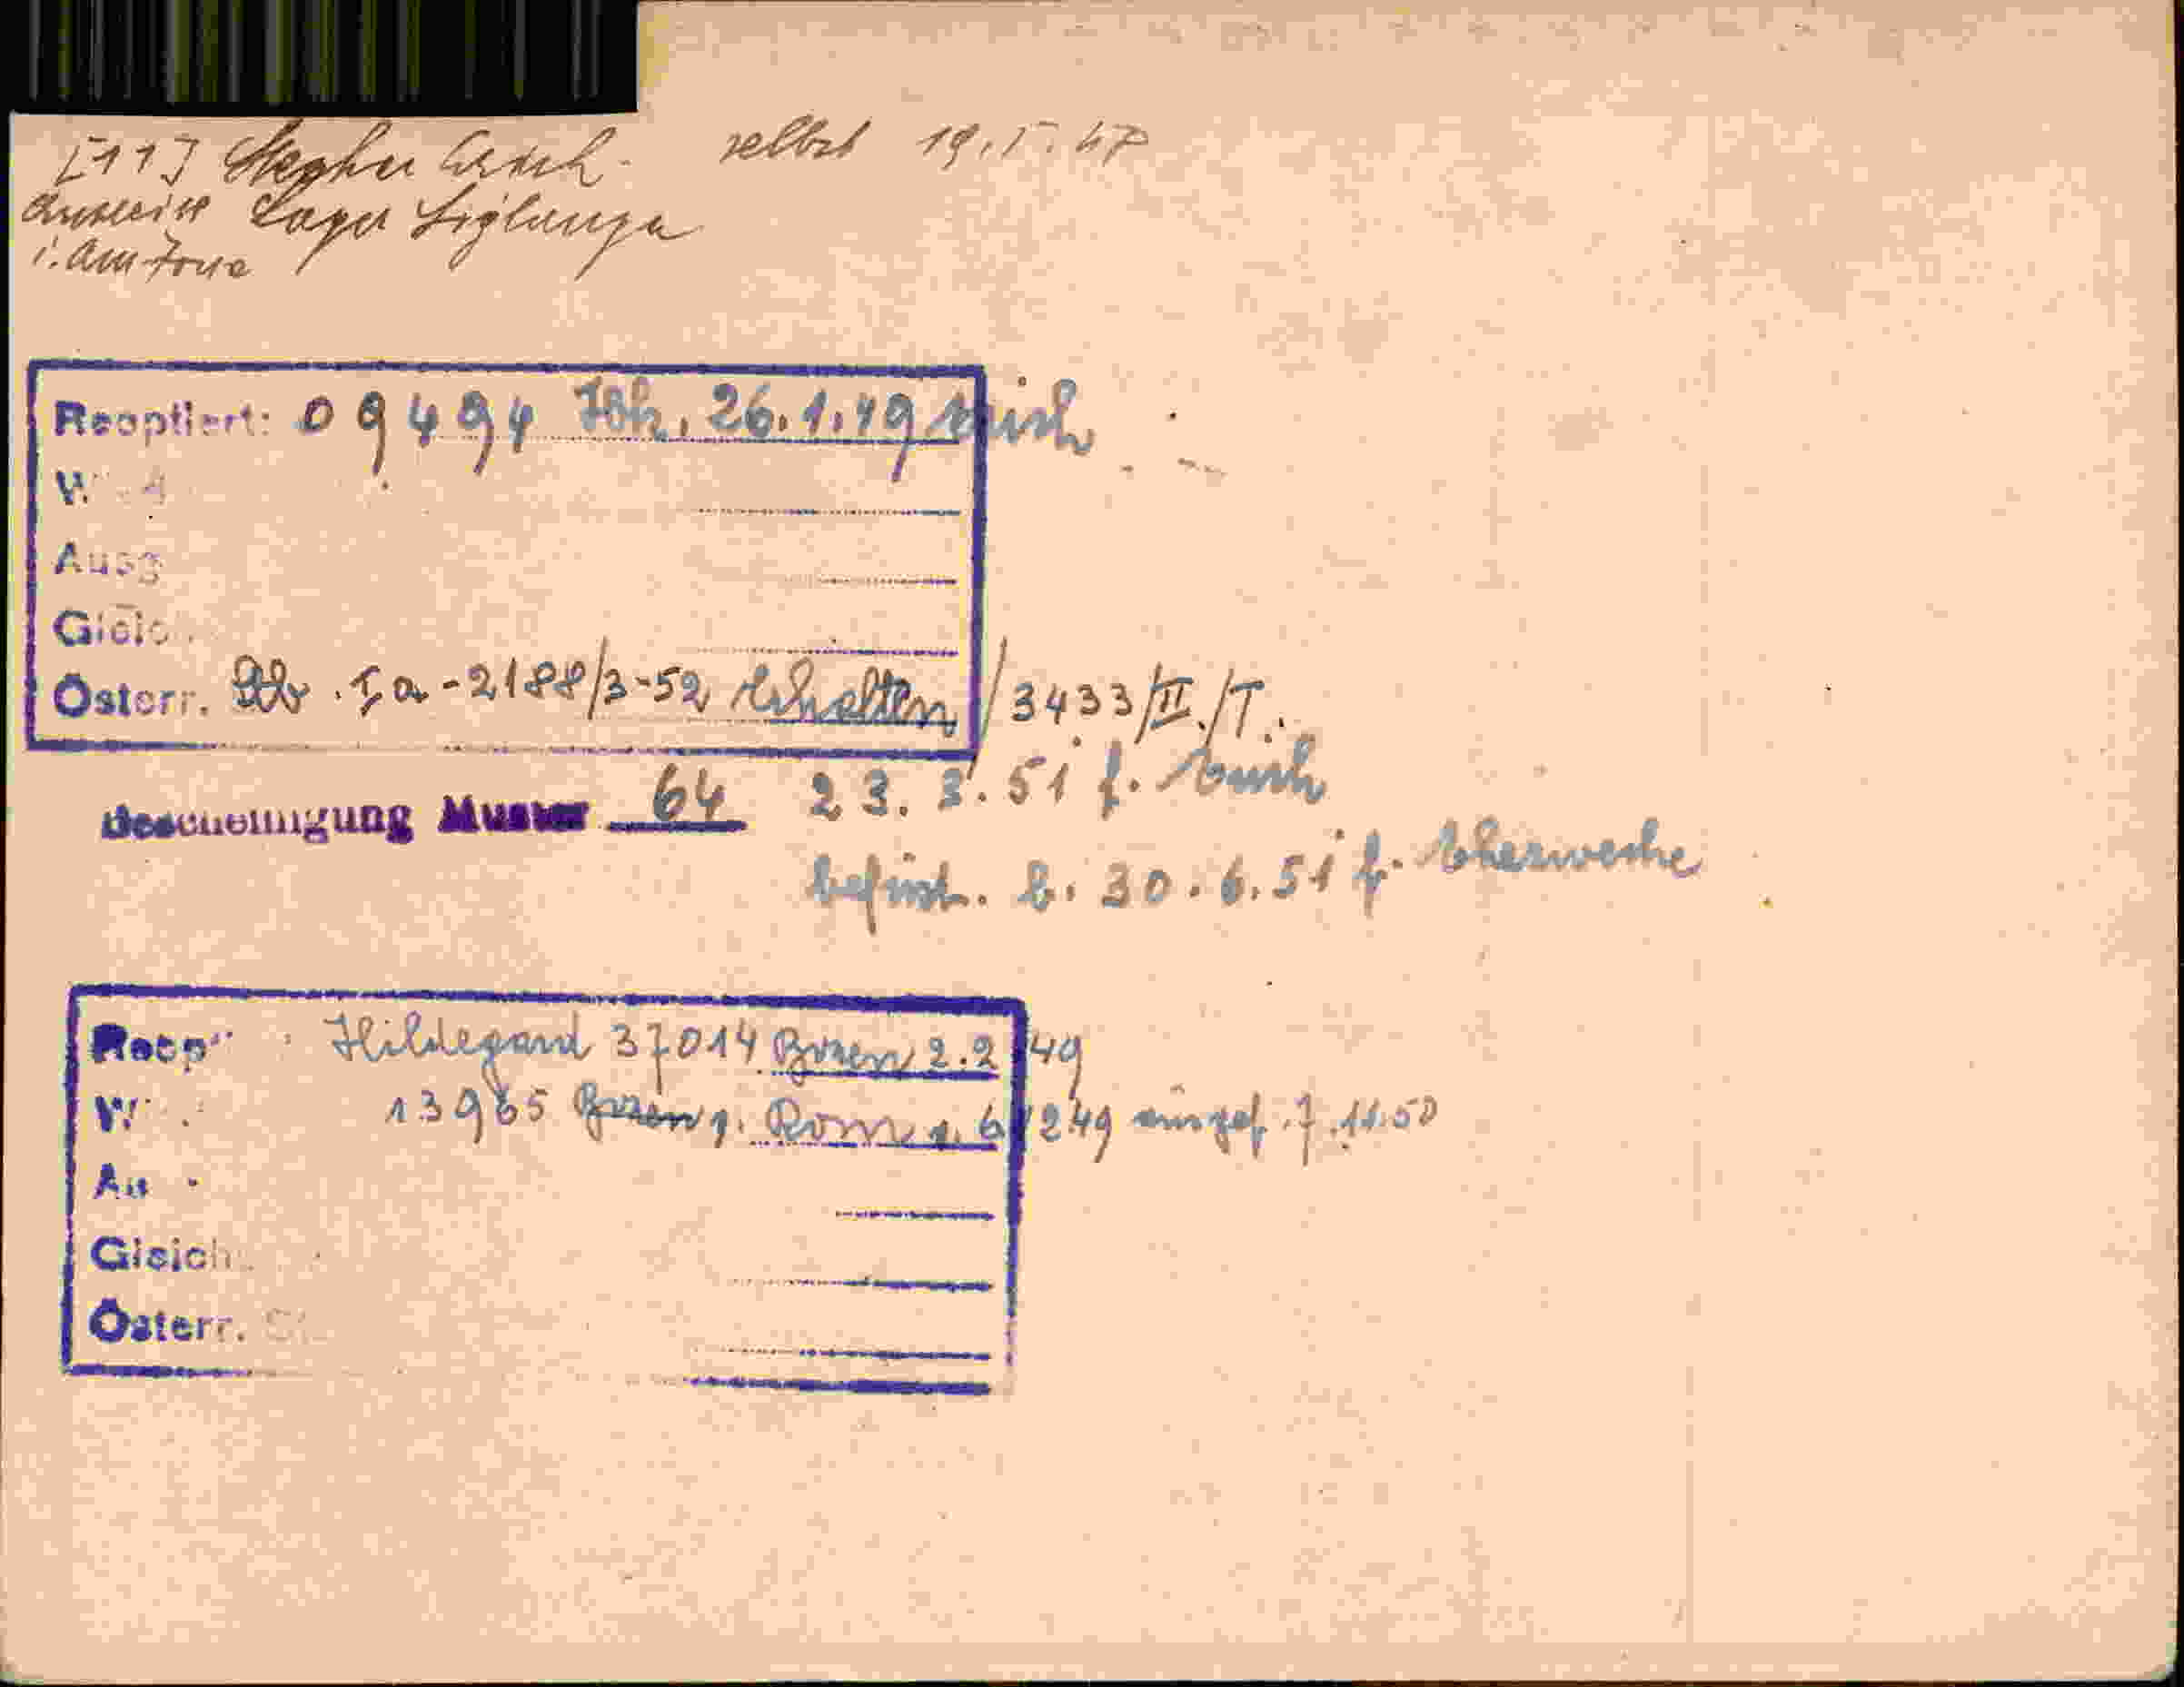 [11] Stephan Erich. selbst 19.I.47
Ausweis Lager
i. Am Zone
Reoptiert: 09494 Ibk. 26.1.49
W
Ausg
Gleic
Österr. Stb. Ia-2188/3-52 erhalten /3433/II./T.
Bescheinigung Muster 64 23.3.51 f.
befrist. b. 30.6.51 f.
Reop Hildegard 37014 Bozen 2.2 49
W 13965 Bozen Rom 49 7.11.50
Au
Gleich
Österr. St